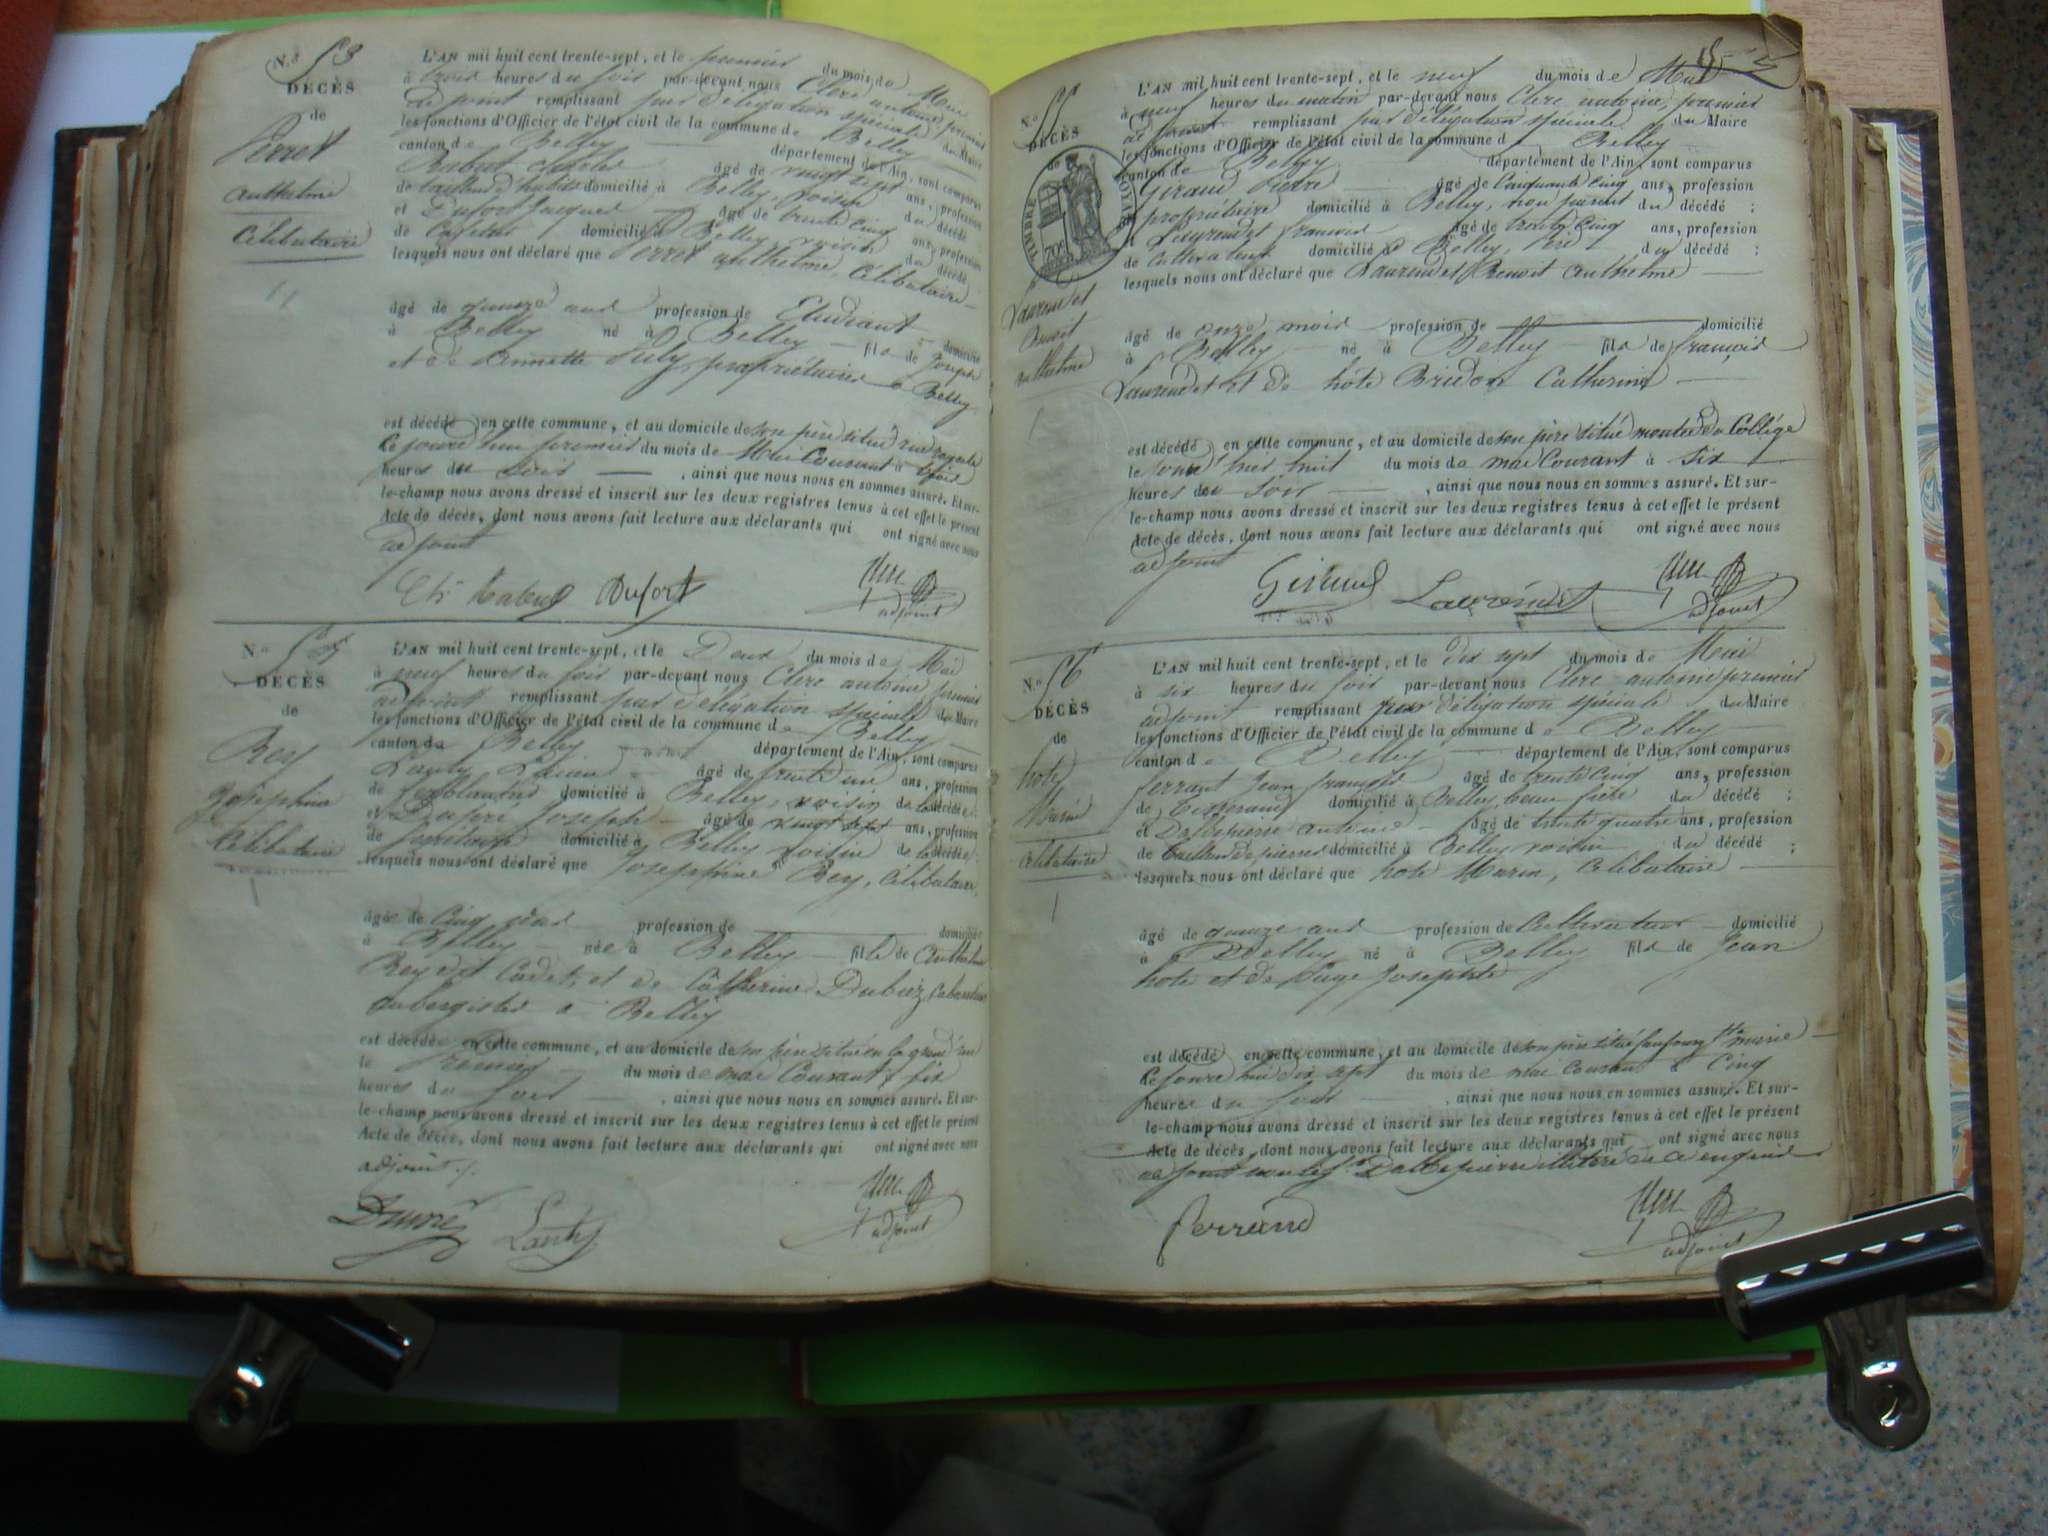 N.º 53
DÉCÈS
de
Perret
anthelme
Célibataire
L'AN mil huit cent trente-sept, et le premier du mois de Mai
à trois heures du soir par-devant nous Clerc antoine premier
adjoint remplissant par délégation spéciale du Maire
les fonctions d'Officier de l'état civil de la commune de Belley
canton de Belley département de l'Ain, sont comparus
Rabut Charles âgé de vingt sept ans, profession
de domicilié à Belley, voisin du décédé
et Dufort Jacques âgé de trente cinq ans, profession
de domicilié à Belley voisin du décédé
lesquels nous ont déclaré que Perret anthelme, Célibataire
âgé de quinze ans profession de Etudiant domicilié
à Belley né à Belley fils de Joseph
et de annette propriétaires à Belley
est décédé en cette commune, et au domicile de son père situé rue royale
le jourd'hui premier du mois de Mai Courant à
heures du soir, ainsi que nous nous en sommes assuré. Et sur-
le-champ nous avons dressé et inscrit sur les deux registres tenus à cet effet le présent
Acte de décès, dont nous avons fait lecture aux déclarants qui ont signé avec nous
adjoint
Ch Rabut Dufort Clerc
adjoint
N.º 54
DÉCÈS
de
Rey
Josephine
Célibataire
L'AN mil huit cent trente-sept, et le Deux du mois de Mai
à neuf heures du soir par-devant nous Clerc antoine premier
adjoint remplissant par délégation spéciale du Maire
les fonctions d'Officier de l'état civil de la commune de Belley
canton de Belley département de l'Ain, sont comparus
Lanty âgé de trente un ans, profession
de ferblantier domicilié à Belley, voisin de la décédée
et Joseph âgé de vingt sept ans, profession
de domicilié à Belley voisin de la décédée
lesquels nous ont déclaré que Josephine Rey, Célibataire,
âgée de Cinq profession de domiciliée
à Belley née à Belley fille de anthelme
Rey dit Cadet, et de Catherine
aubergistes à Belley
est décédée en cette commune, et au domicile de son père situé en la grande rue
le Premier du mois de mai Courant à six
heures du soir, ainsi que nous nous en sommes assuré. Et sur-
le-champ nous avons dressé et inscrit sur les deux registres tenus à cet effet le présent
Acte de décès, dont nous avons fait lecture aux déclarants qui ont signé avec nous
adjoint
Lanty Clerc
adjoint
N.º 55
DÉCÈS
de
TIMBRE ROYAL
70c
Laurendet
Benoit
anthelme
L'AN mil huit cent trente-sept, et le neuf du mois de Mai
à neuf heures du matin par-devant nous Clerc antoine, premier
adjoint remplissant par délégation spéciale du Maire
les fonctions d'Officier de l'état civil de la commune de Belley
canton de Belley département de l'Ain, sont comparus
Giraud Pierre âgé de Cinquante cinq ans, profession
propriétaire domicilié à Belley, non parent du décédé ;
et Laurendet françois âgé de trente cinq ans, profession
de Cultivateur domicilié à Belley, père du décédé ;
lesquels nous ont déclaré que Laurendet Benoit anthelme
âgé de onze mois profession de domicilié
à Belley né à Belley fils de françois
Laurendet et de hôte Bridon Catherine
est décédé en cette commune, et au domicile de son père situé montée du Collége
le jour d'hier huit du mois de mai Courant à six
heures du soir, ainsi que nous nous en sommes assuré. Et sur-
le-champ nous avons dressé et inscrit sur les deux registres tenus à cet effet le présent
Acte de décès, dont nous avons fait lecture aux déclarants qui ont signé avec nous
adjoint
Giraud Laurendet Clerc
adjoint
N.º 56
DÉCÈS
de
hote
Marin
Célibataire
L'AN mil huit cent trente-sept, et le dix sept du mois de Mai
à six heures du soir par-devant nous Clerc antoine premier
adjoint remplissant par délégation spéciale du Maire
les fonctions d'Officier de l'état civil de la commune de Belley
canton de Belley département de l'Ain, sont comparus
ferrant Jean françois âgé de trente cinq ans, profession
de Tisserand domicilié à Belley, beau frère du décédé ;
et antoine âgé de trente quatre ans, profession
de Tailleur de pierres domicilié à Belley voisin du décédé ;
lesquels nous ont déclaré que hote Marin, Célibataire
âgé de quinze ans profession de Cultivateur domicilié
à Belley né à Belley fils de Jean
hote et de Josephte
est décédé en cette commune, et au domicile de son père situé faubourg Ste marie
le jourd'hui dix sept du mois de mai Courant à Cinq
heures du soir, ainsi que nous nous en sommes assuré. Et sur-
le-champ nous avons dressé et inscrit sur les deux registres tenus à cet effet le présent
Acte de décès, dont nous avons fait lecture aux déclarants qui ont signé avec nous
adjoint illitéré de ce enquis
ferrand Clerc
adjoint